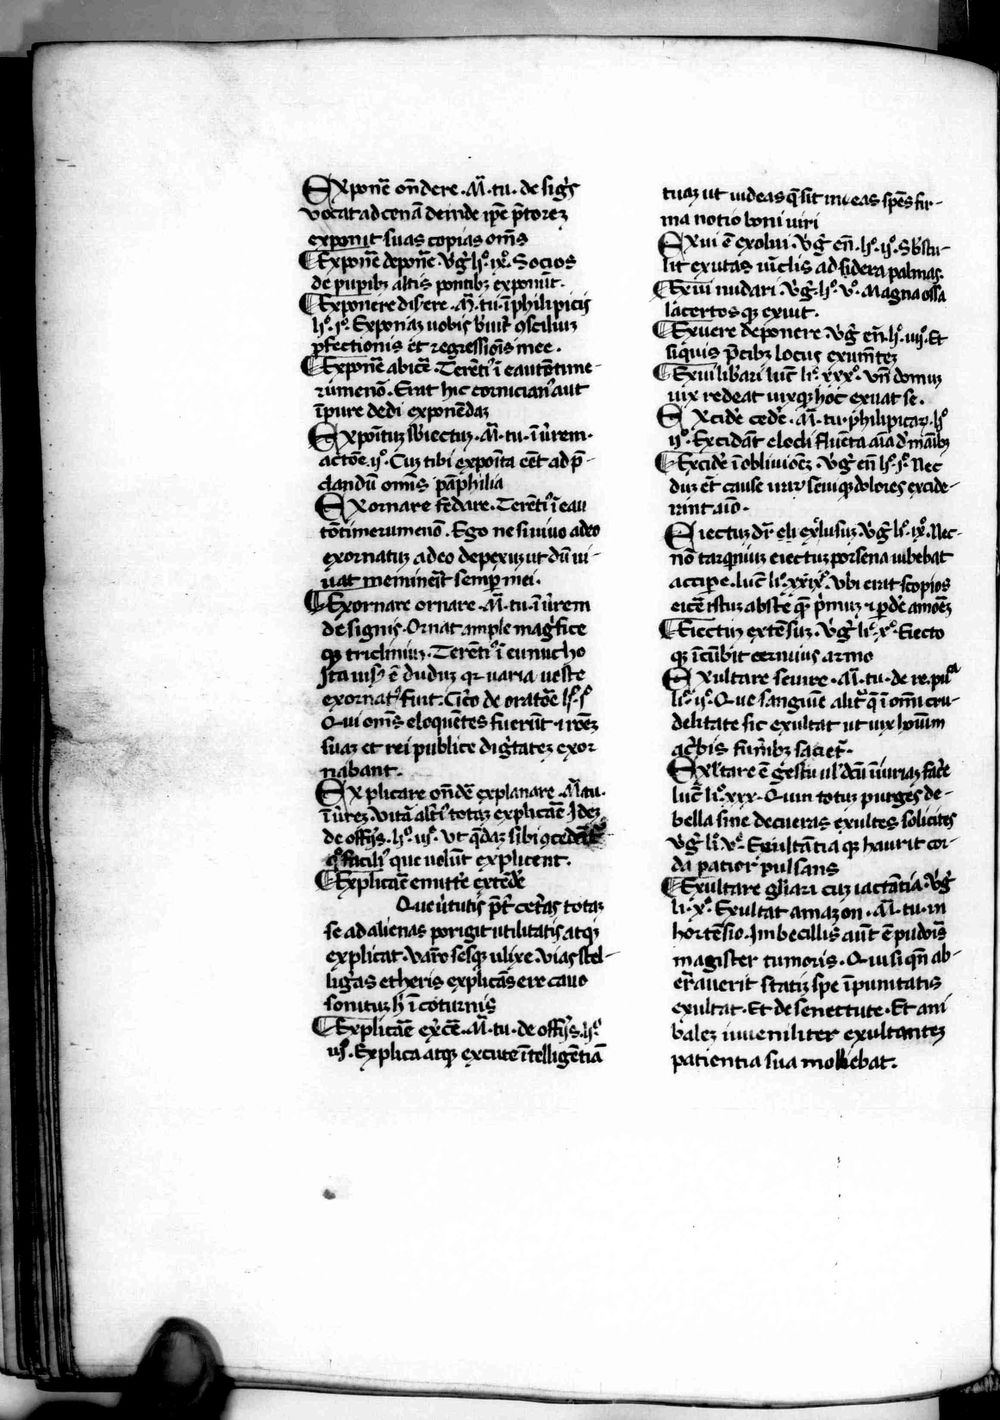 Exponẽ oñdere .M̃. tu. de sig̃s
vocat ad cenã deinde ip̃e p̃torez
exponit suas copias om̃s
Exponẽ deponẽ. Vg̃ lº. ix. Socios
de pupibz altis pontibz exponũt.
Exponere dis̃ere .M̃. tu. ĩ philipicis
lº. iº. Exponaz uobis
p̃fectionis et regressiõis mee.
Exponẽ abicẽ. Terẽti9 ĩ eautõtime-
rumenõ. Erat hic aut
ĩpure dedi exponẽdaz
Expõituz sb̃iectuz .M̃. tu. ĩ ũrem.
actõe .iiº. Cuz tibi expoĩta eẽt ad p̃-
dandũ om̃s pãphilia
Exornare fedare. Terẽti9 ĩ eau
tõtimerumenõ. Ego ne si uiuo adeo
exornatuz adeo depexuz ut dũ ui-
uat meminerit semp mei.
Exornare ornare .M̃. tu. ĩ ũrem
de signis. Ornat ample mag̃fice
qz tricliniuz. Terẽti9 ĩ eunucho
Ita uisuz ẽ duduz qr uaria ueste
exornat9 fuit. Cic̃o de oratõe lº. iº
Qui om̃s eloquẽtes fuerũt
suaz et rei publice dig̃tatez exor
nabant.
Explicare oñdẽ explanare .M̃. tu.
ĩ ũrez. Vitã alti9 totaz explicãe Idez
de offijs. lº. iiiº. Vt q̃daz sibi ↄcedãt
q̃ facili9 que uolũt explicent.
Explicãe emittẽ extẽdẽ
Que ũtutis p̃t cet̃as totaz
se ad alienas porrigit utilitatis atqz
explicat. Varro sesqz ulixe. Vias stel-
lig̃as etheris explicãs ere cauo
sonituz ĩ coturnis
Explicãe ex̃cẽ .M̃. tu. de offijs. lº.
iiiº. Explica atqz excute ĩtelligẽtiã
tuaz ut uideas q̃ sit in eas spẽs fir-
ma notio boni uiri
Exui ẽ exolui. Vg̃ eñ. lº. iiº. Sb̃stu-
lit exutas uĩclis ad sidera palmas.
Exui nudari. Vg̃. lº. vº. Magna ossa
lacertos qz exiut.
Exuere deponere. Vg̃ eñ. lº. iiiiº. Et
siquis p̃cibz locus exum̃tez
Exui lib̃ari luc̃ liº. xxxº. Vñ domuz
uix redeat uixqz hoc exuat se.
Excidẽ cedẽ .M̃. tu. philipicaz. lº
iiº. Excidãt elocli flueta aĩa d̃ manibz
Excidẽ ĩ obliuiõez. Vg̃ eñ lº. iº. Nec
duz et cause irar seuiqz dolores excide-
rint aĩo.
Eiectuz dr̃ exclusuz. Vg̃ lº. ixº. Nec-
nõ tarq̃niuz eiectuz porsena iubebat
accipe. luc̃ liº. xxixº. Vbi erit scopios
eicẽ istuz abs te q̃ p̃muz pdẽ amorẽz
Eiectuz extẽsuz. Vg̃ liº. xº. Eiecto
qz ĩcũbit cernuus armo
Exultare seuire .M̃. tu. de re. pu.
liº. iiº. Que sanguiẽ alit̃ q̃ ĩ om̃i cru-
delitate sic exultat ut uix hoium
ac̃bis fun̾ibz saciet̃.
Exl̃tare ẽ gestu ĩiuriaz fac̃e
luc̃ liº. xxx. Quin totuz purges de-
bella sine decueras exultes solicites
Vg̃ li. vº. Exultãtia qz haurit cor-
da pauor pulsans
Exultare gl̃iari cuz iactãtia. Vg̃
li. xº. Exultat amazon .M̃. tu. in
hortẽsio. Imbecillis aũt ẽ pudoris
magister tumoris. Qui si qñ ab-
er̃auerit statiz spe ĩpunitatis
exultat. Et de senectute. Et ani
balez iuueniliter exultantez
patientia sua molliebat.